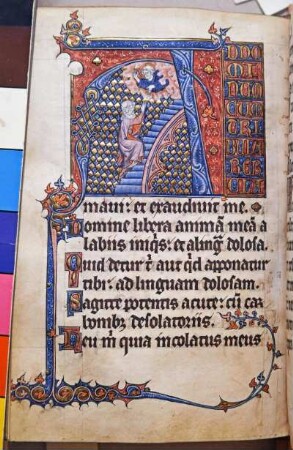 maui: et exaudiuit me.
Domine libera animã meã a
labiis iniqis: et a ling̃ dolosa.
Quid detur t̃ aut qd apponatur
tibi: ad linguam dolosam.
Sagitte potentis acute: cũ car
bonibꝫ desolatoriis.
Heu m̃ quia incolatus meus